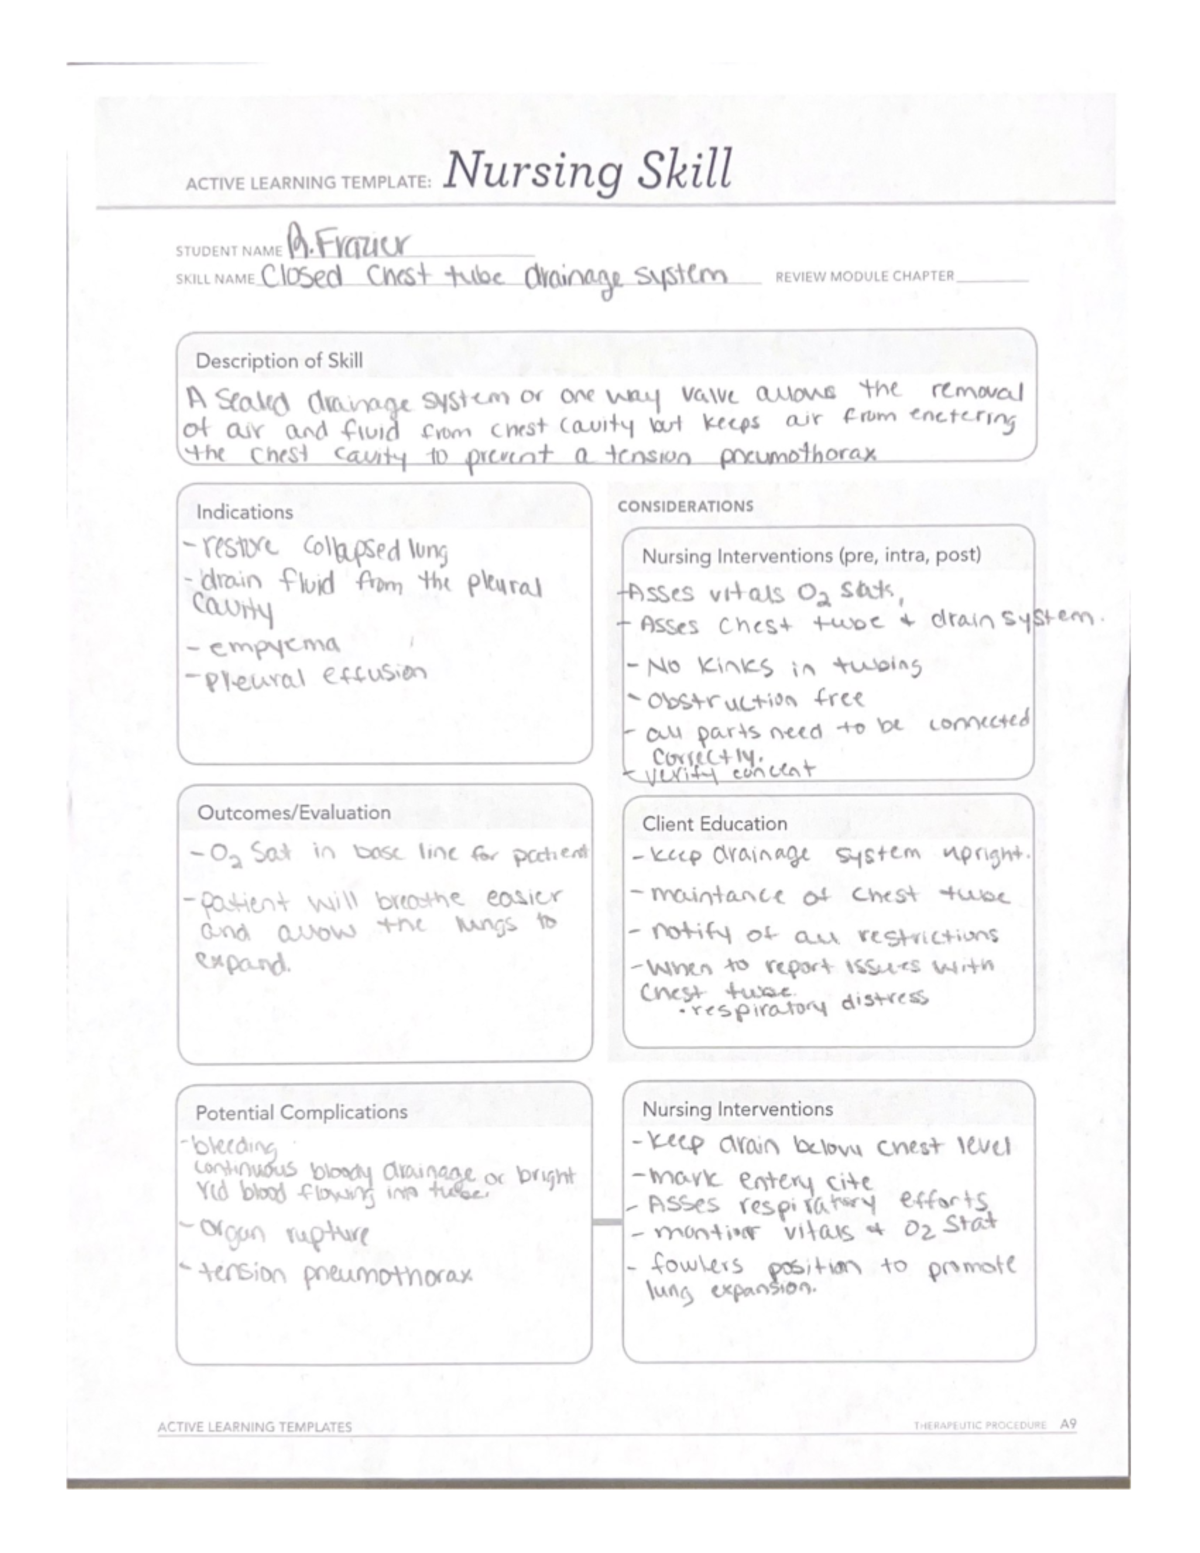 ACTIVE LEARNING TEMPLATE: Nursing Skill
STUDENT NAME A.Frazier
SKILL NAME Closed Chest tube drainage system REVIEW MODULE CHAPTER
Description of Skill
A Sealed drainage system or one way valve allows the removal
of air and fluid from chest cavity but keeps air from enetering
the chest cavity to prevent a tension pneumothorax
Indications
- restore collapsed lung
- drain fluid from the pleural
cavity
- empyema
- pleural effusion
CONSIDERATIONS
Nursing Interventions (pre, intra, post)
- Asses vitals O2 Stats,
- Asses Chest tube + drain system.
- No Kinks in tubing
- Obstruction free
- all parts need to be connected
correctly.
- verify concent
Outcomes/Evaluation
- O2 Sat in base line for patient
- patient will breathe easier
and allow the lungs to
expand.
Client Education
- keep drainage system upright.
- maintance of chest tube
- notify of all restrictions
- When to report issues with
Chest tube.
• respiratory distress
Potential Complications
- bleeding
continuous bloody drainage or bright
red blood flowing into tube.
- organ rupture
- tension pneumothorax
Nursing Interventions
- Keep drain below chest level
- mark entery cite
- Asses respiratory efforts
- montior vitals + O2 Stat
- fowlers position to promote
lung expansion.
ACTIVE LEARNING TEMPLATES
THERAPEUTIC PROCEDURE A9